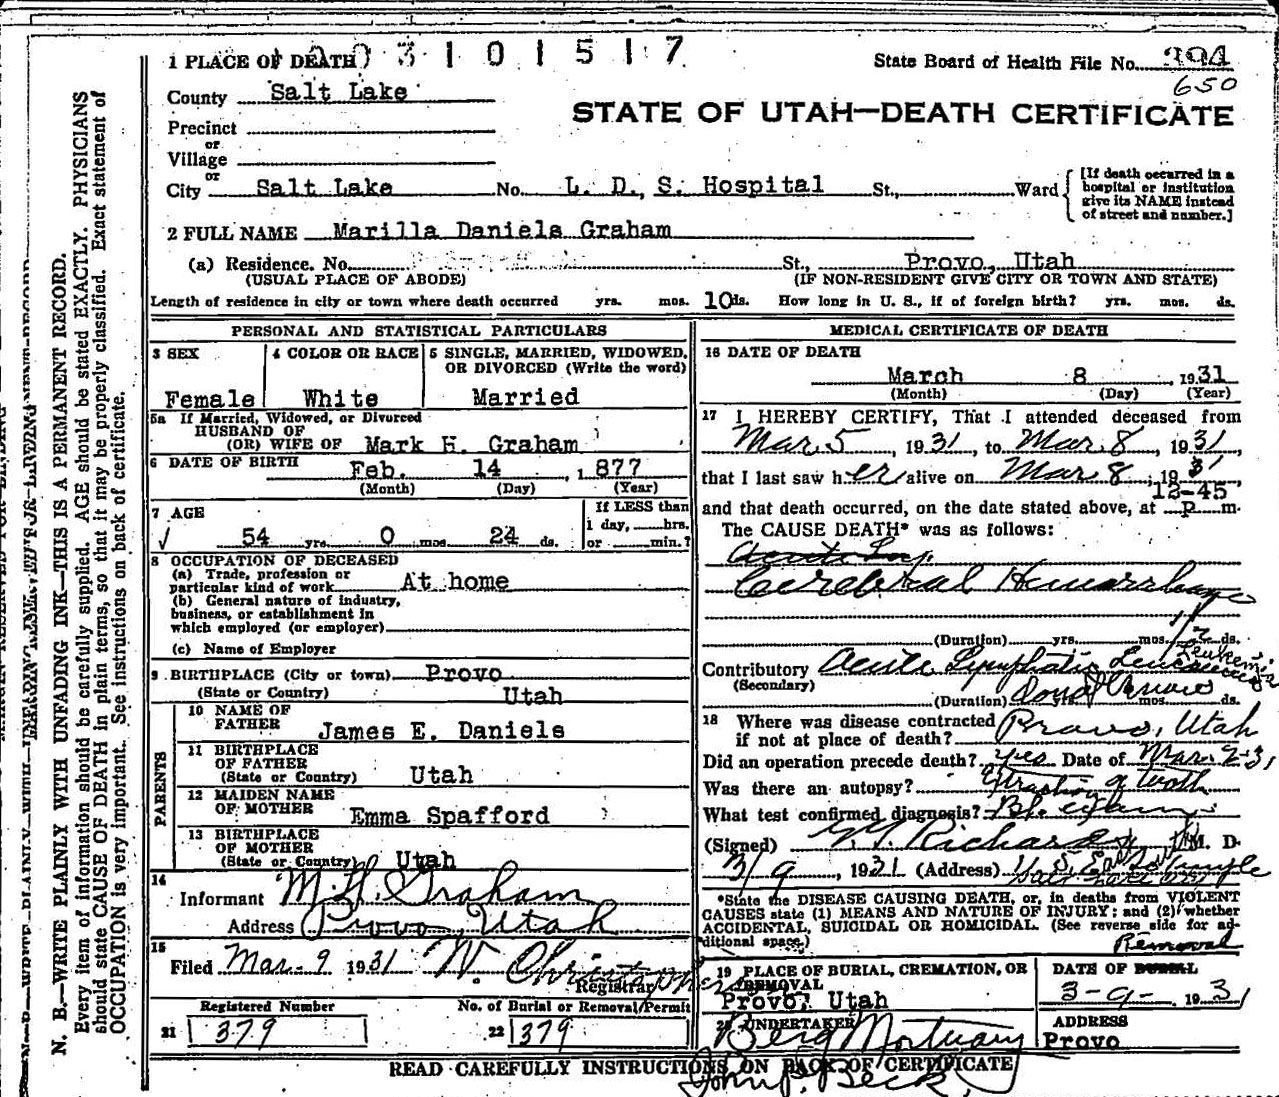 1 PLACE OF DEATH 3 1 0 1 5 1 7
State Board of Health File No. 394
650
County Salt Lake
STATE OF UTAH—DEATH CERTIFICATE
Precinct
or
Village
or
City Salt Lake No. L. D. S. Hospital St., Ward
[If death occurred in a
hospital or institution
give its NAME instead
of street and number.]
2 FULL NAME Marilla Daniels Graham
(a) Residence. No. St., Provo, Utah
(USUAL PLACE OF ABODE) (IF NON-RESIDENT GIVE CITY OR TOWN AND STATE)
Length of residence in city or town where death occurred yrs. mos. 10 ds. How long in U. S., if of foreign birth? yrs. mos. ds.
PERSONAL AND STATISTICAL PARTICULARS
3 SEX 4 COLOR OR RACE 5 SINGLE, MARRIED, WIDOWED,
OR DIVORCED (Write the word)
Female White Married
5a If Married, Widowed, or Divorced
HUSBAND OF
(OR) WIFE OF Mark H. Graham
6 DATE OF BIRTH Feb. 14, 1877
(Month) (Day) (Year)
7 AGE If LESS than
1 day, hrs.
√ 54 yrs. 0 mos. 24 ds. or min.?
8 OCCUPATION OF DECEASED
(a) Trade, profession or
particular kind of work At home
(b) General nature of industry,
business, or establishment in
which employed (or employer)
(c) Name of Employer
9 BIRTHPLACE (City or town) Provo
(State or Country) Utah
PARENTS
10 NAME OF
FATHER James E. Daniels
11 BIRTHPLACE
OF FATHER
(State or Country) Utah
12 MAIDEN NAME
OF MOTHER Emma Spafford
13 BIRTHPLACE
OF MOTHER
(State or Country) Utah
14
Informant M. H. Graham
Address Provo, Utah
15
Filed Mar. 9 1931 W. Christopherson
Registrar
Registered Number No. of Burial or Removal Permit
21 379 22 379
MEDICAL CERTIFICATE OF DEATH
16 DATE OF DEATH
March 8, 1931
(Month) (Day) (Year)
17 I HEREBY CERTIFY, That I attended deceased from
Mar. 5, 1931, to Mar. 8, 1931,
that I last saw her alive on Mar. 8, 1931
12-45
and that death occurred, on the date stated above, at P. m.
The CAUSE DEATH* was as follows:
Acute Lymp.
Cerebral Hemorrhage
(Duration) yrs. mos. 1/2 ds.
Leukemia
Contributory Acute Lymphatic
(Secondary)
(Duration) Dont Know yrs. mos. ds.
18 Where was disease contracted
if not at place of death? Provo, Utah
Did an operation precede death? Yes Date of Mar. 2-31
Extraction of tooth
Was there an autopsy?
What test confirmed diagnosis? Bl. exam
(Signed) G. G. Richards, M. D.
3/9, 1931 (Address)
*State the DISEASE CAUSING DEATH, or, in deaths from VIOLENT
CAUSES state (1) MEANS AND NATURE OF INJURY; and (2) whether
ACCIDENTAL, SUICIDAL OR HOMICIDAL. (See reverse side for ad-
ditional space.)
Removal
19 PLACE OF BURIAL, CREMATION, OR
REMOVAL
Provo, Utah
DATE OF BURIAL
3-9- 1931
20 UNDERTAKER
Berg Mortuary
John P. Beck
ADDRESS
Provo
READ CAREFULLY INSTRUCTIONS ON BACK OF CERTIFICATE
N. B.—WRITE PLAINLY WITH UNFADING INK—THIS IS A PERMANENT RECORD.
Every item of information should be carefully supplied. AGE should be stated EXACTLY. PHYSICIANS
should state CAUSE OF DEATH in plain terms, so that it may be properly classified. Exact statement of
OCCUPATION is very important. See instructions on back of certificate.